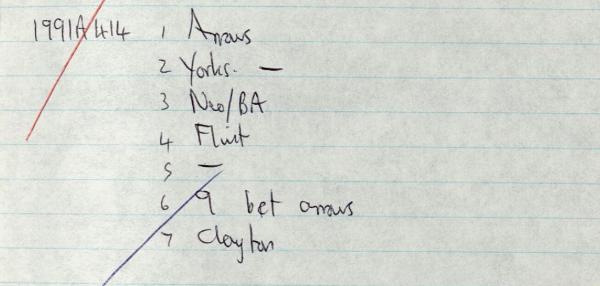 1991A414 1 Arrows
2 Yorks. —
3 Neo/BA
4 Flint
5 —
6 9 bet arrows
7 Clayton